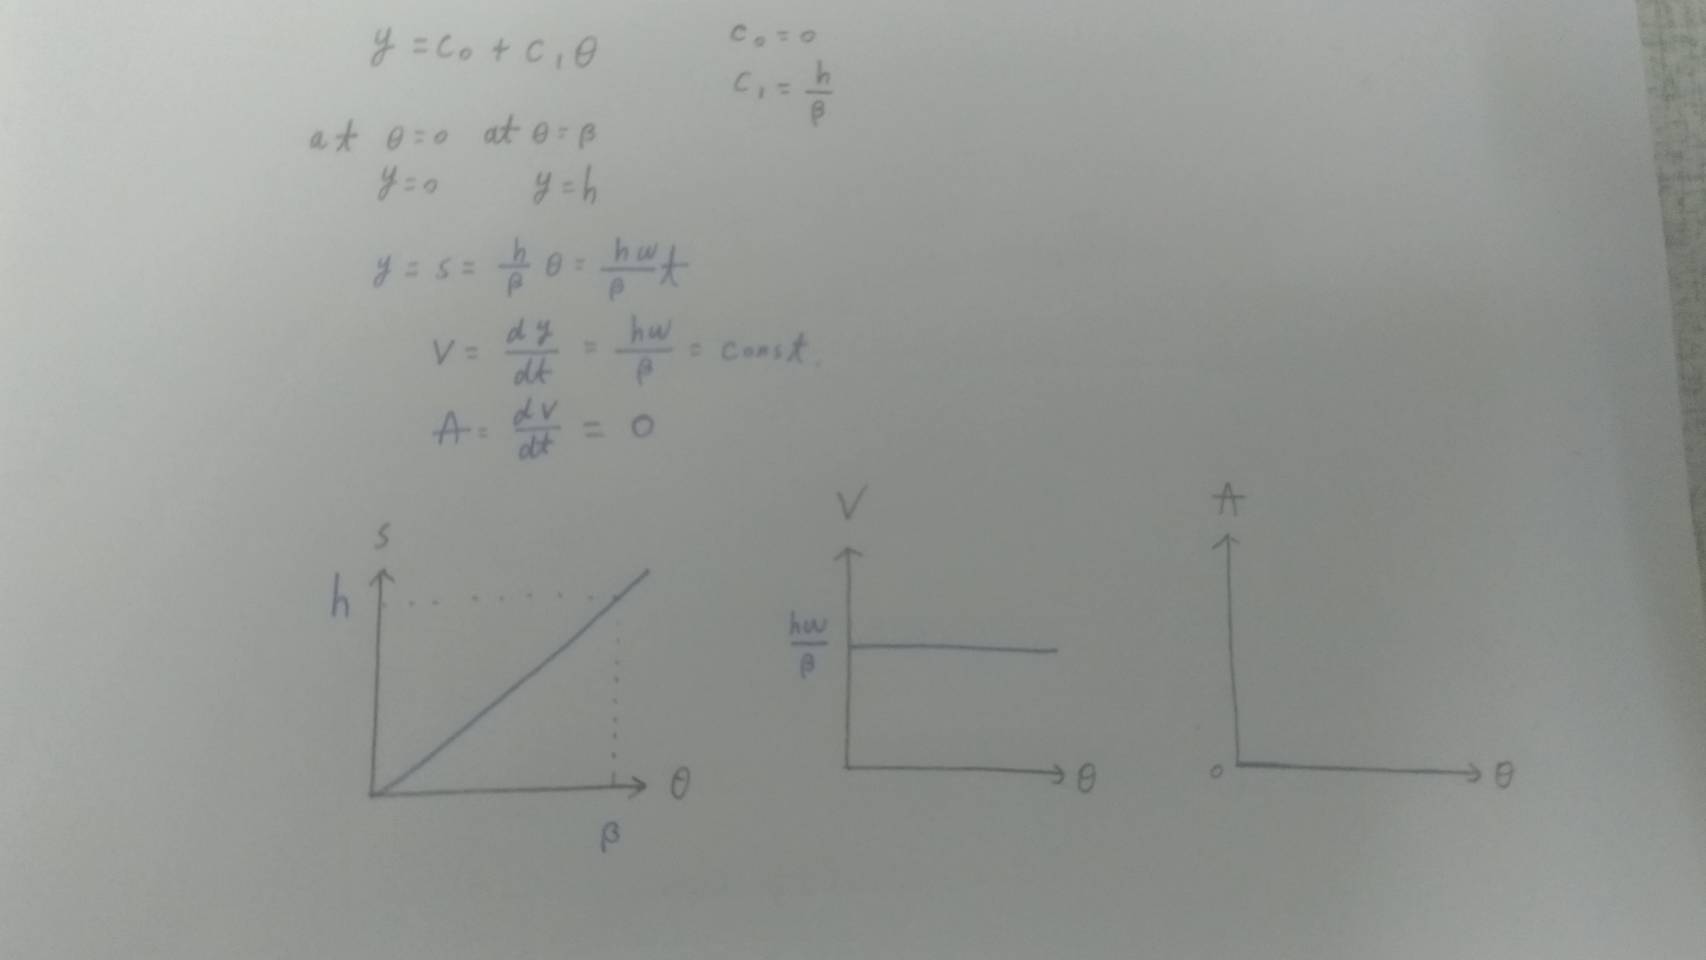 y = c₀ + c₁θ
c₀ = 0
c₁ = h/β
at θ=0 at θ=β
y=0 y=h
y = s = h/β θ = hω/β t
V = dy/dt = hω/β = const.
A = dv/dt = 0
s
h
θ
β
V
hω/β
θ
A
0
θ